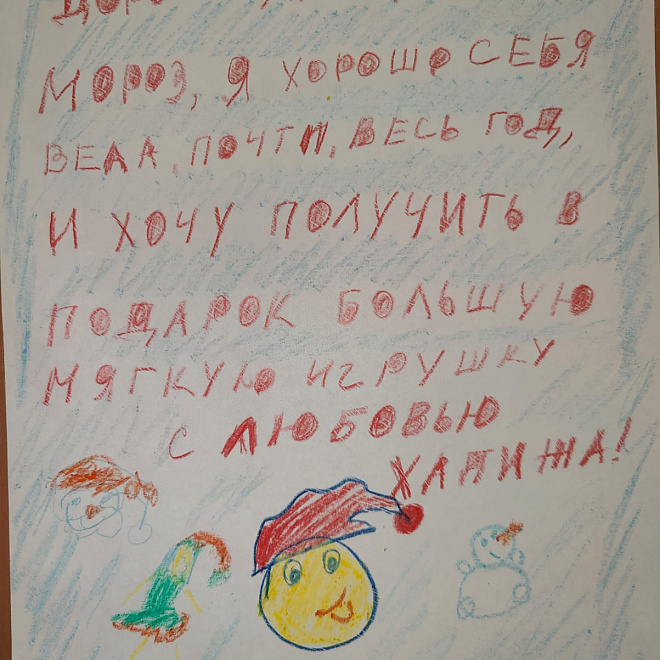 МОРОЗ, Я ХОРОШО СЕБЯ
ВЕЛА, ПОЧТИ, ВЕСЬ ГОД,
И ХОЧУ ПОЛУЧИТЬ В
ПОДАРОК БОЛЬШУЮ
МЯГКУЮ ИГРУШКУ
С ЛЮБОВЬЮ
ХАПИЖА!